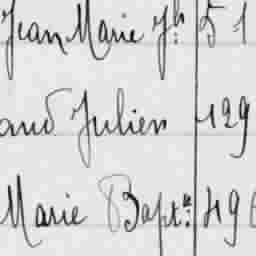 Jean Marie Jh 51
aud Julien 129
Marie Bapte: 496